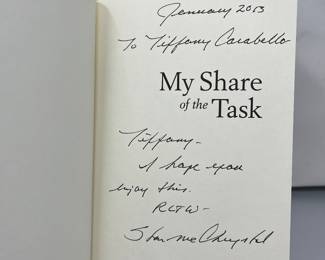 January 2013
To Tiffany Carabello
My Share
of the Task
Tiffany-
I hope you
enjoy this.
RLTW-
Stan McChrystal